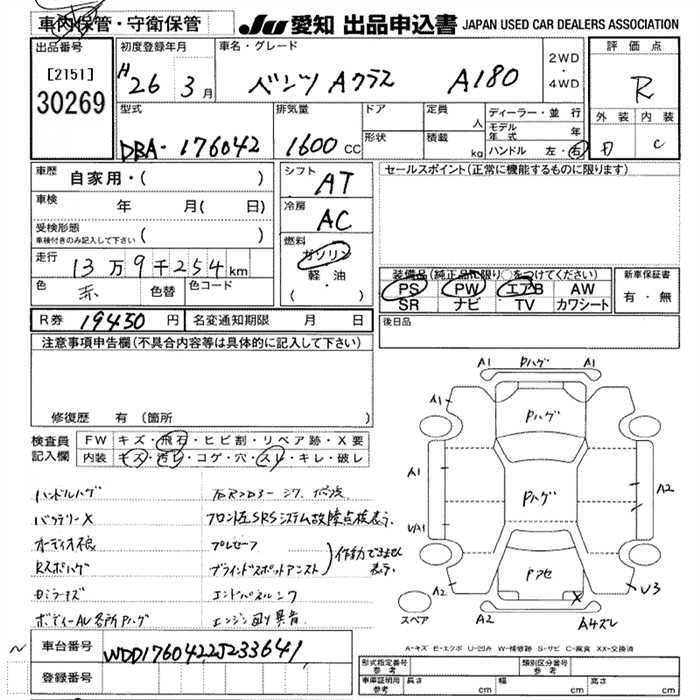 車内保管・守衛保管
JU 愛知 出品申込書 JAPAN USED CAR DEALERS ASSOCIATION
出品番号
[2151]
30269
初度登録年月
H26年 3月
車名・グレード
ベンツ Aクラス A180
2WD・4WD
評価点
R
外装 内装
D C
型式
DBA-176042
排気量
1600 CC
ドア
形状
定員 人
積載 kg
ディーラー・並行
モデル年式 年
ハンドル 左・右
車歴 自家用・( )
車検 年 月( 日)
受検形態 ( )
車検付きのみ記入して下さい
走行 13万9千254km
色 赤 色替 色コード
シフト AT
冷房 AC
燃料
ガソリン
軽油
( ・ )
セールスポイント(正常に機能するものに限ります)
装備品(純正品に限り○をつけてください)
PS PW エアB AW
SR ナビ TV カワシート
新車保証書
有・無
R券 19450円 名変通知期限 月 日
後日品
注意事項申告欄(不具合内容等は具体的に記入して下さい)
修復歴 有(箇所 )
検査員記入欄
FW キズ・飛石・ヒビ割・リペア跡・X要
内装 キズ・汚レ・コゲ・穴・スレ・キレ・破レ
ハンドルハゲ
バッテリーX
フロント左SRSシステム故障点検表示
オーディオ
プレセーフ
ブラインドスポットアシスト
作動できません表示
エンドパネル
ボディーAU各所Pハゲ
エンジン回り異音
車台番号 WDD1760422J233641
登録番号
A1 Pハゲ A1
A1 Pハゲ
A1 Pハゲ A2
UA1
A2 U3
X
スペア A2 A4スレ
A-キズ E-エクボ U-凹み W-補修跡 S-サビ C-腐食 XX-交換済
型式指定番号 参考 類別区分番号 参考
車庫証明用 参考 長さ cm 幅 cm 高さ cm